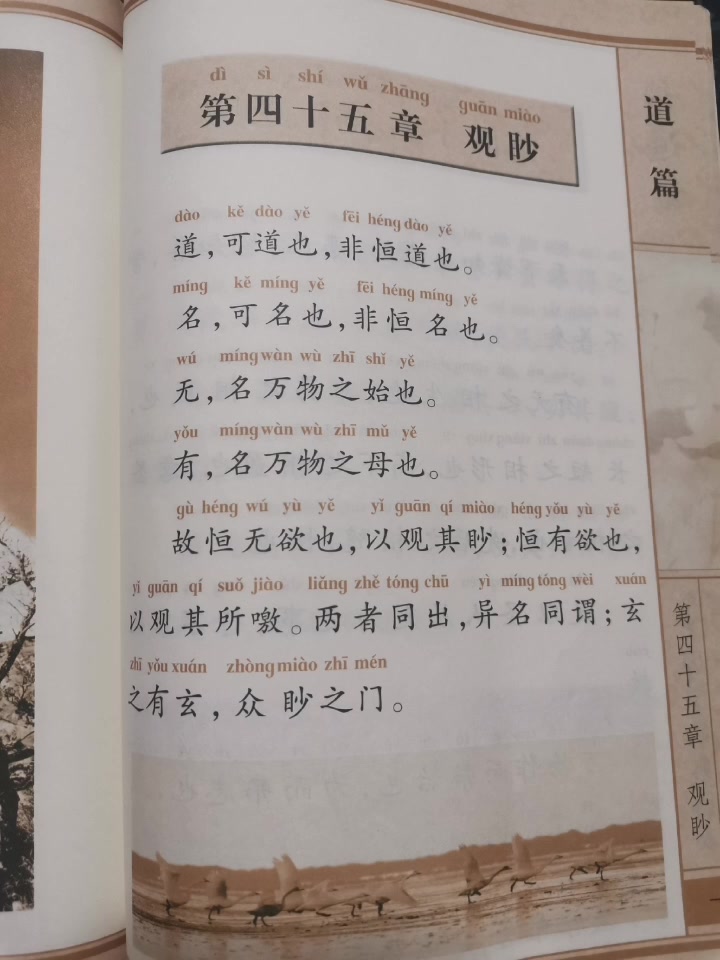 dì sì shí wǔ zhāng guān miào
第四十五章 观眇
dào kě dào yě fēi héng dào yě
道,可道也,非恒道也。
míng kě míng yě fēi héng míng yě
名,可名也,非恒名也。
wú míng wàn wù zhī shǐ yě
无,名万物之始也。
yǒu míng wàn wù zhī mǔ yě
有,名万物之母也。
gù héng wú yù yě yǐ guān qí miào héng yǒu yù yě
故恒无欲也,以观其眇;恒有欲也,
yǐ guān qí suǒ jiào liǎng zhě tóng chū yì míng tóng wèi xuán
以观其所噭。两者同出,异名同谓;玄
zhī yǒu xuán zhòng miào zhī mén
之有玄,众眇之门。
道篇
第四十五章 观眇